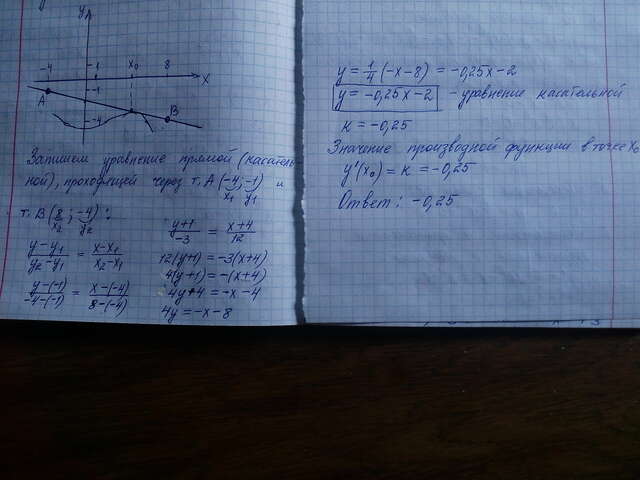 y
-4 1 x₀ 8 x
-1
A
-4 B
Запишем уравнение прямой (касатель-
ной), проходящей через т. A (-4; -1) и
x₁ y₁
т. B (8; -4):
x₂ y₂
(y-y₁)/(y₂-y₁) = (x-x₁)/(x₂-x₁)
(y-(-1))/(-4-(-1)) = (x-(-4))/(8-(-4))
(y+1)/(-3) = (x+4)/12
12(y+1) = -3(x+4)
4(y+1) = -(x+4)
4y+4 = -x-4
4y = -x-8
y = 1/4 (-x-8) = -0,25x-2
y = -0,25x-2 - уравнение касательной
к = -0,25
Значение производной функции в точке x₀
y'(x₀) = к = -0,25
Ответ: -0,25